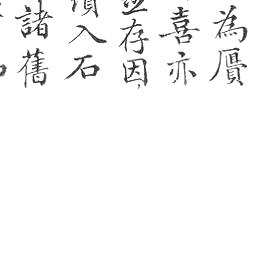 為贗
喜亦
並存因
入石
諸舊